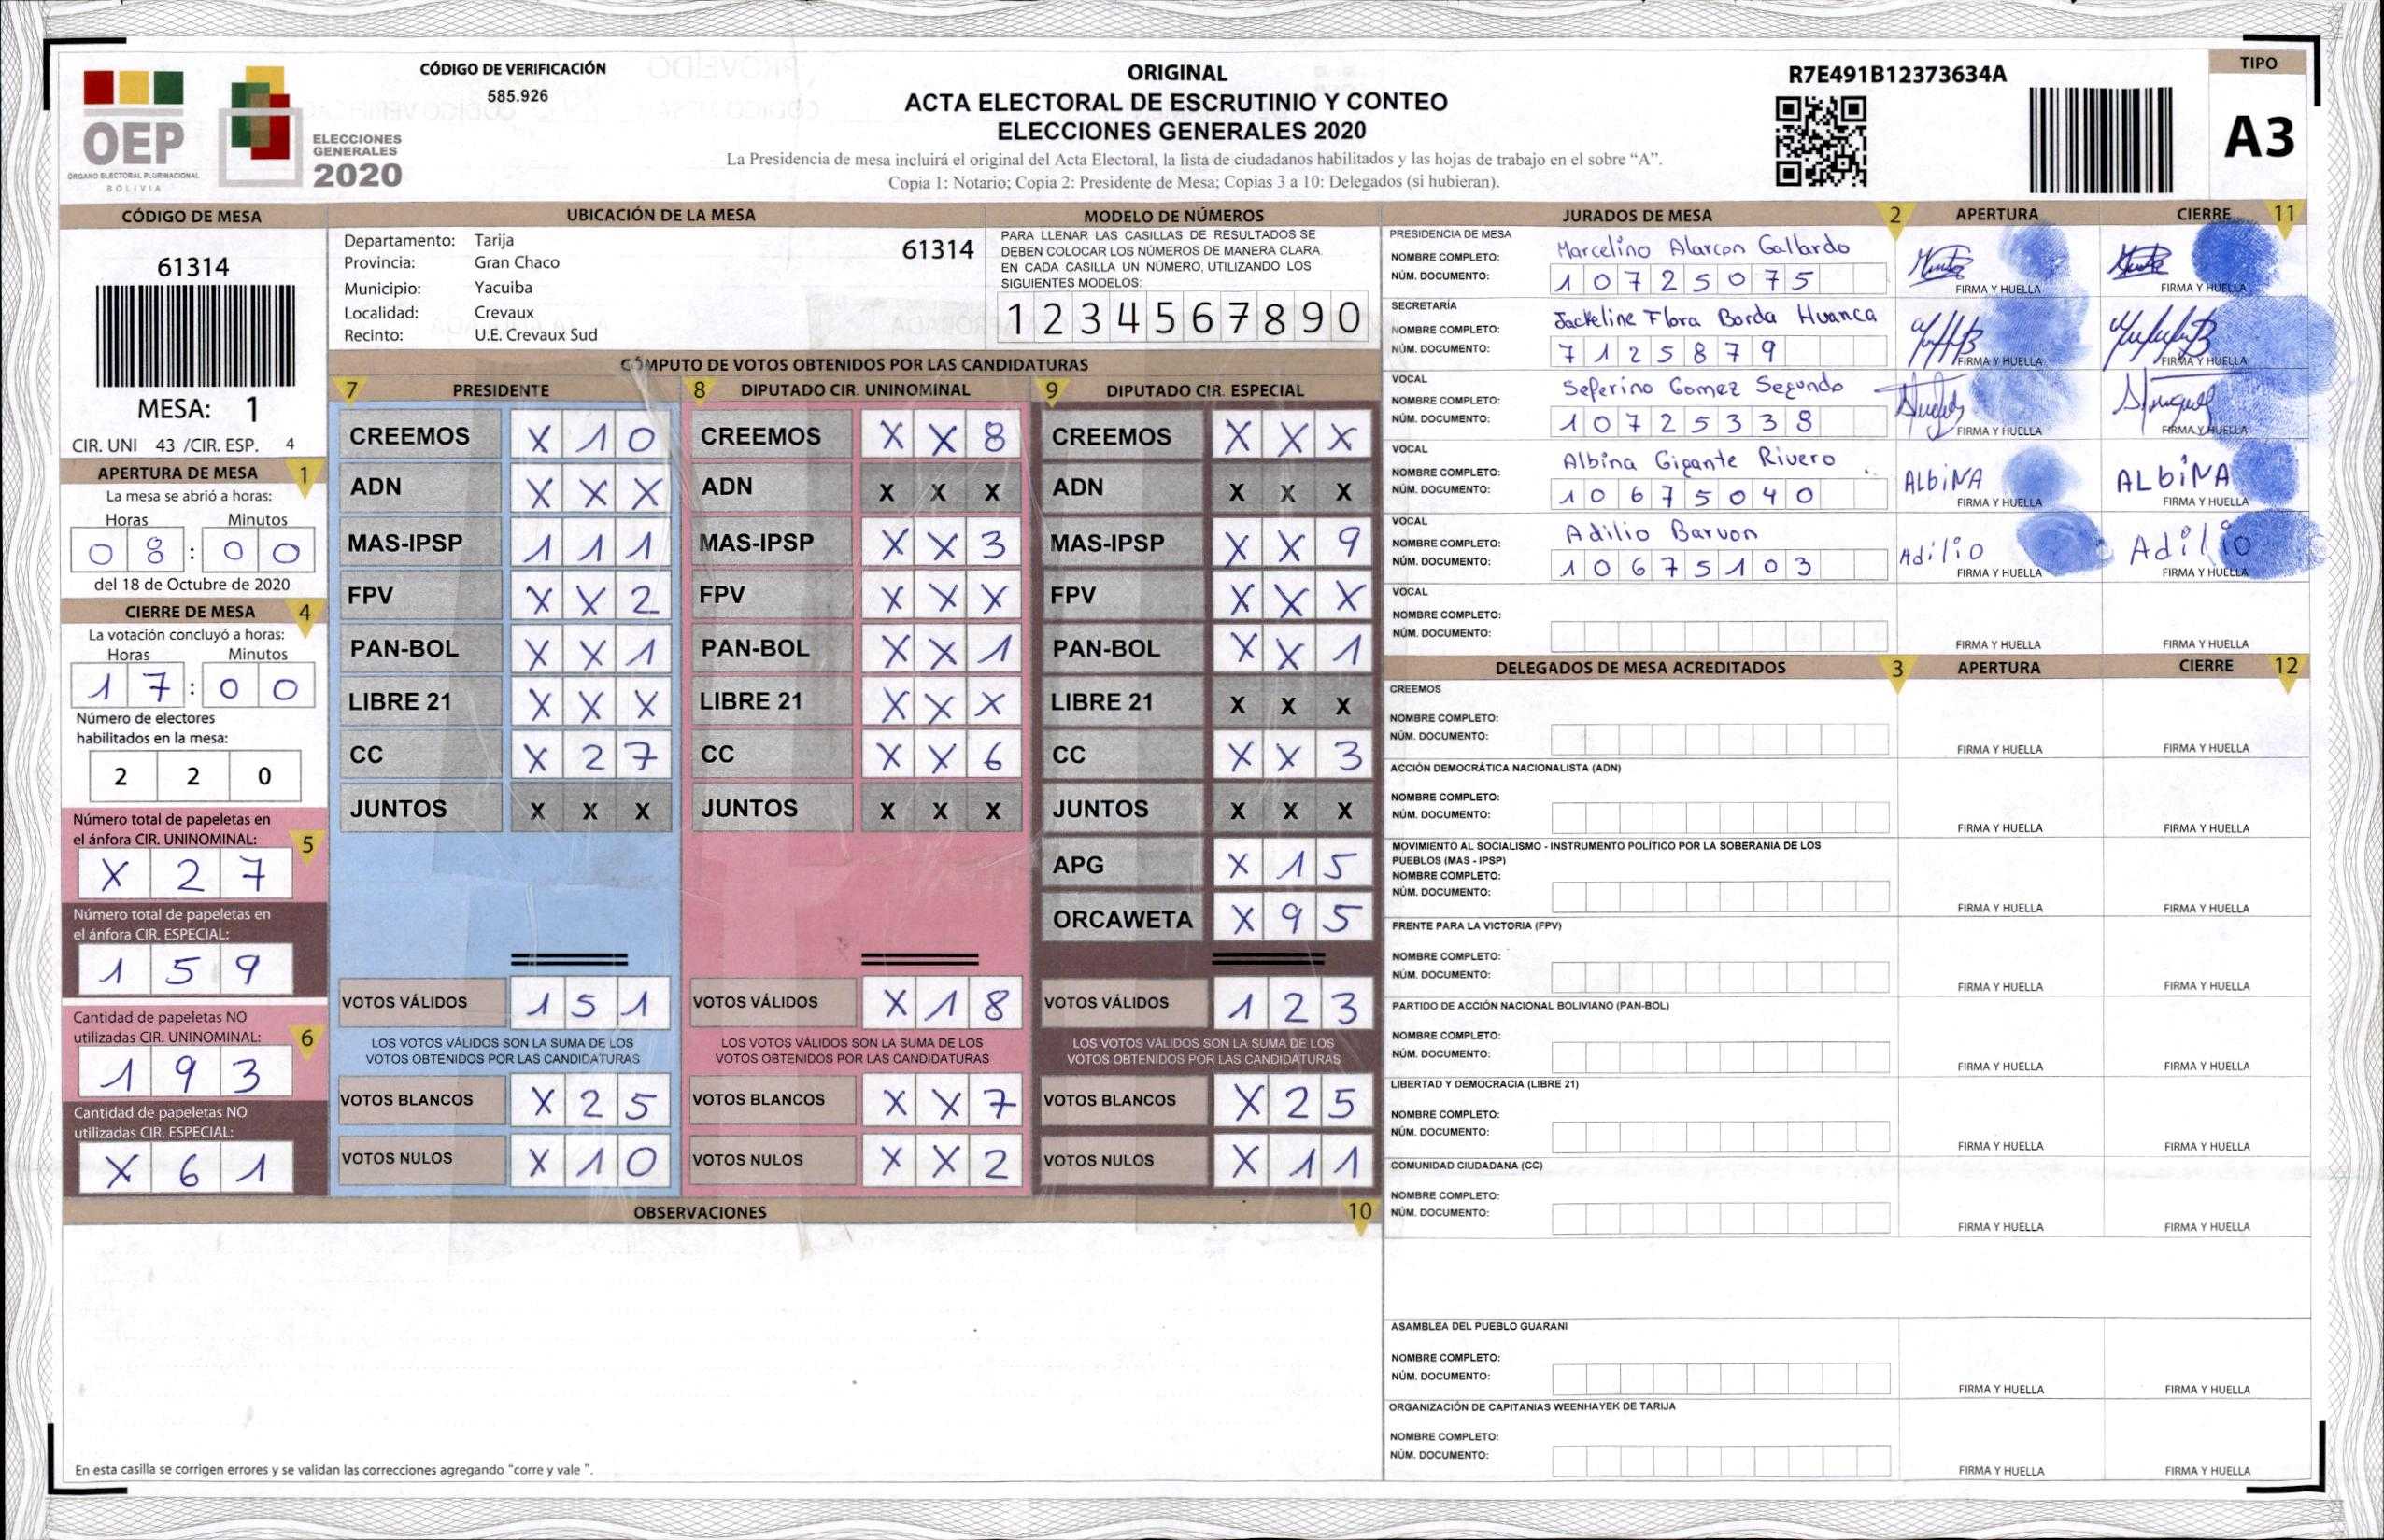 OEP
ÓRGANO ELECTORAL PLURINACIONAL
BOLIVIA
ELECCIONES
GENERALES
2020
CÓDIGO DE VERIFICACIÓN
585.926
ORIGINAL
ACTA ELECTORAL DE ESCRUTINIO Y CONTEO
ELECCIONES GENERALES 2020
La Presidencia de mesa incluirá el original del Acta Electoral, la lista de ciudadanos habilitados y las hojas de trabajo en el sobre “A”.
Copia 1: Notario; Copia 2: Presidente de Mesa; Copias 3 a 10: Delegados (si hubieran).
R7E491B12373634A
TIPO
A3
CÓDIGO DE MESA
61314
MESA: 1
CIR. UNI 43 /CIR. ESP. 4
APERTURA DE MESA 1
La mesa se abrió a horas:
Horas Minutos
0 8 : 0 0
del 18 de Octubre de 2020
CIERRE DE MESA 4
La votación concluyó a horas:
Horas Minutos
1 7 : 0 0
Número de electores
habilitados en la mesa:
2 2 0
Número total de papeletas en
el ánfora CIR. UNINOMINAL: 5
X 2 7
Número total de papeletas en
el ánfora CIR. ESPECIAL:
1 5 9
Cantidad de papeletas NO
utilizadas CIR. UNINOMINAL: 6
1 9 3
Cantidad de papeletas NO
utilizadas CIR. ESPECIAL:
X 6 1
UBICACIÓN DE LA MESA
Departamento: Tarija 61314
Provincia: Gran Chaco
Municipio: Yacuiba
Localidad: Crevaux
Recinto: U.E. Crevaux Sud
MODELO DE NÚMEROS
PARA LLENAR LAS CASILLAS DE RESULTADOS SE
DEBEN COLOCAR LOS NÚMEROS DE MANERA CLARA.
EN CADA CASILLA UN NÚMERO, UTILIZANDO LOS
SIGUIENTES MODELOS:
1 2 3 4 5 6 7 8 9 0
CÓMPUTO DE VOTOS OBTENIDOS POR LAS CANDIDATURAS
7 PRESIDENTE
CREEMOS X 1 0
ADN X X X
MAS-IPSP 1 1 1
FPV X X 2
PAN-BOL X X 1
LIBRE 21 X X X
CC X 2 7
JUNTOS X X X
VOTOS VÁLIDOS 1 5 1
LOS VOTOS VÁLIDOS SON LA SUMA DE LOS
VOTOS OBTENIDOS POR LAS CANDIDATURAS
VOTOS BLANCOS X 2 5
VOTOS NULOS X 1 0
8 DIPUTADO CIR. UNINOMINAL
CREEMOS X X 8
ADN X X X
MAS-IPSP X X 3
FPV X X X
PAN-BOL X X 1
LIBRE 21 X X X
CC X X 6
JUNTOS X X X
VOTOS VÁLIDOS X 1 8
LOS VOTOS VÁLIDOS SON LA SUMA DE LOS
VOTOS OBTENIDOS POR LAS CANDIDATURAS
VOTOS BLANCOS X X 7
VOTOS NULOS X X 2
9 DIPUTADO CIR. ESPECIAL
CREEMOS X X X
ADN X X X
MAS-IPSP X X 9
FPV X X X
PAN-BOL X X 1
LIBRE 21 X X X
CC X X 3
JUNTOS X X X
APG X 1 5
ORCAWETA X 9 5
VOTOS VÁLIDOS 1 2 3
LOS VOTOS VÁLIDOS SON LA SUMA DE LOS
VOTOS OBTENIDOS POR LAS CANDIDATURAS
VOTOS BLANCOS X 2 5
VOTOS NULOS X 1 1
OBSERVACIONES 10
En esta casilla se corrigen errores y se validan las correcciones agregando “corre y vale ”.
JURADOS DE MESA 2 APERTURA CIERRE 11
PRESIDENCIA DE MESA
NOMBRE COMPLETO: Marcelino Alarcon Gallardo
NÚM. DOCUMENTO: 1 0 7 2 5 0 7 5
FIRMA Y HUELLA FIRMA Y HUELLA
SECRETARÍA
NOMBRE COMPLETO: Jackeline Flora Borda Huanca
NÚM. DOCUMENTO: 7 1 2 5 8 7 9
FIRMA Y HUELLA FIRMA Y HUELLA
VOCAL
NOMBRE COMPLETO: Seferino Gomez Segundo
NÚM. DOCUMENTO: 1 0 7 2 5 3 3 8
FIRMA Y HUELLA FIRMA Y HUELLA
VOCAL
NOMBRE COMPLETO: Albina Gigante Rivero
NÚM. DOCUMENTO: 1 0 6 7 5 0 4 0
ALbiNA ALbiNA
FIRMA Y HUELLA FIRMA Y HUELLA
VOCAL
NOMBRE COMPLETO: Adilio Barvon
NÚM. DOCUMENTO: 1 0 6 7 5 1 0 3
Adilio Adilio
FIRMA Y HUELLA FIRMA Y HUELLA
VOCAL
NOMBRE COMPLETO:
NÚM. DOCUMENTO:
FIRMA Y HUELLA FIRMA Y HUELLA
DELEGADOS DE MESA ACREDITADOS 3 APERTURA CIERRE 12
CREEMOS
NOMBRE COMPLETO:
NÚM. DOCUMENTO:
FIRMA Y HUELLA FIRMA Y HUELLA
ACCIÓN DEMOCRÁTICA NACIONALISTA (ADN)
NOMBRE COMPLETO:
NÚM. DOCUMENTO:
FIRMA Y HUELLA FIRMA Y HUELLA
MOVIMIENTO AL SOCIALISMO - INSTRUMENTO POLÍTICO POR LA SOBERANIA DE LOS
PUEBLOS (MAS - IPSP)
NOMBRE COMPLETO:
NÚM. DOCUMENTO:
FIRMA Y HUELLA FIRMA Y HUELLA
FRENTE PARA LA VICTORIA (FPV)
NOMBRE COMPLETO:
NÚM. DOCUMENTO:
FIRMA Y HUELLA FIRMA Y HUELLA
PARTIDO DE ACCIÓN NACIONAL BOLIVIANO (PAN-BOL)
NOMBRE COMPLETO:
NÚM. DOCUMENTO:
FIRMA Y HUELLA FIRMA Y HUELLA
LIBERTAD Y DEMOCRACIA (LIBRE 21)
NOMBRE COMPLETO:
NÚM. DOCUMENTO:
FIRMA Y HUELLA FIRMA Y HUELLA
COMUNIDAD CIUDADANA (CC)
NOMBRE COMPLETO:
NÚM. DOCUMENTO:
FIRMA Y HUELLA FIRMA Y HUELLA
ASAMBLEA DEL PUEBLO GUARANI
NOMBRE COMPLETO:
NÚM. DOCUMENTO:
FIRMA Y HUELLA FIRMA Y HUELLA
ORGANIZACIÓN DE CAPITANIAS WEENHAYEK DE TARIJA
NOMBRE COMPLETO:
NÚM. DOCUMENTO:
FIRMA Y HUELLA FIRMA Y HUELLA